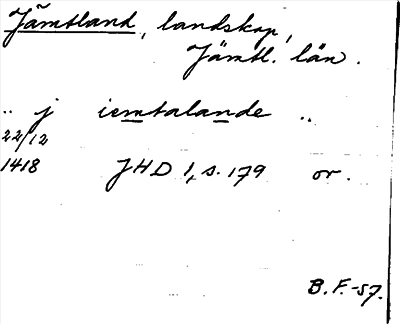 Jämtland, landskap,
Jämtl. län.
.. j iemtalande ..
22/12
1418 JHD 1, s. 179 or.
B. F. -57.